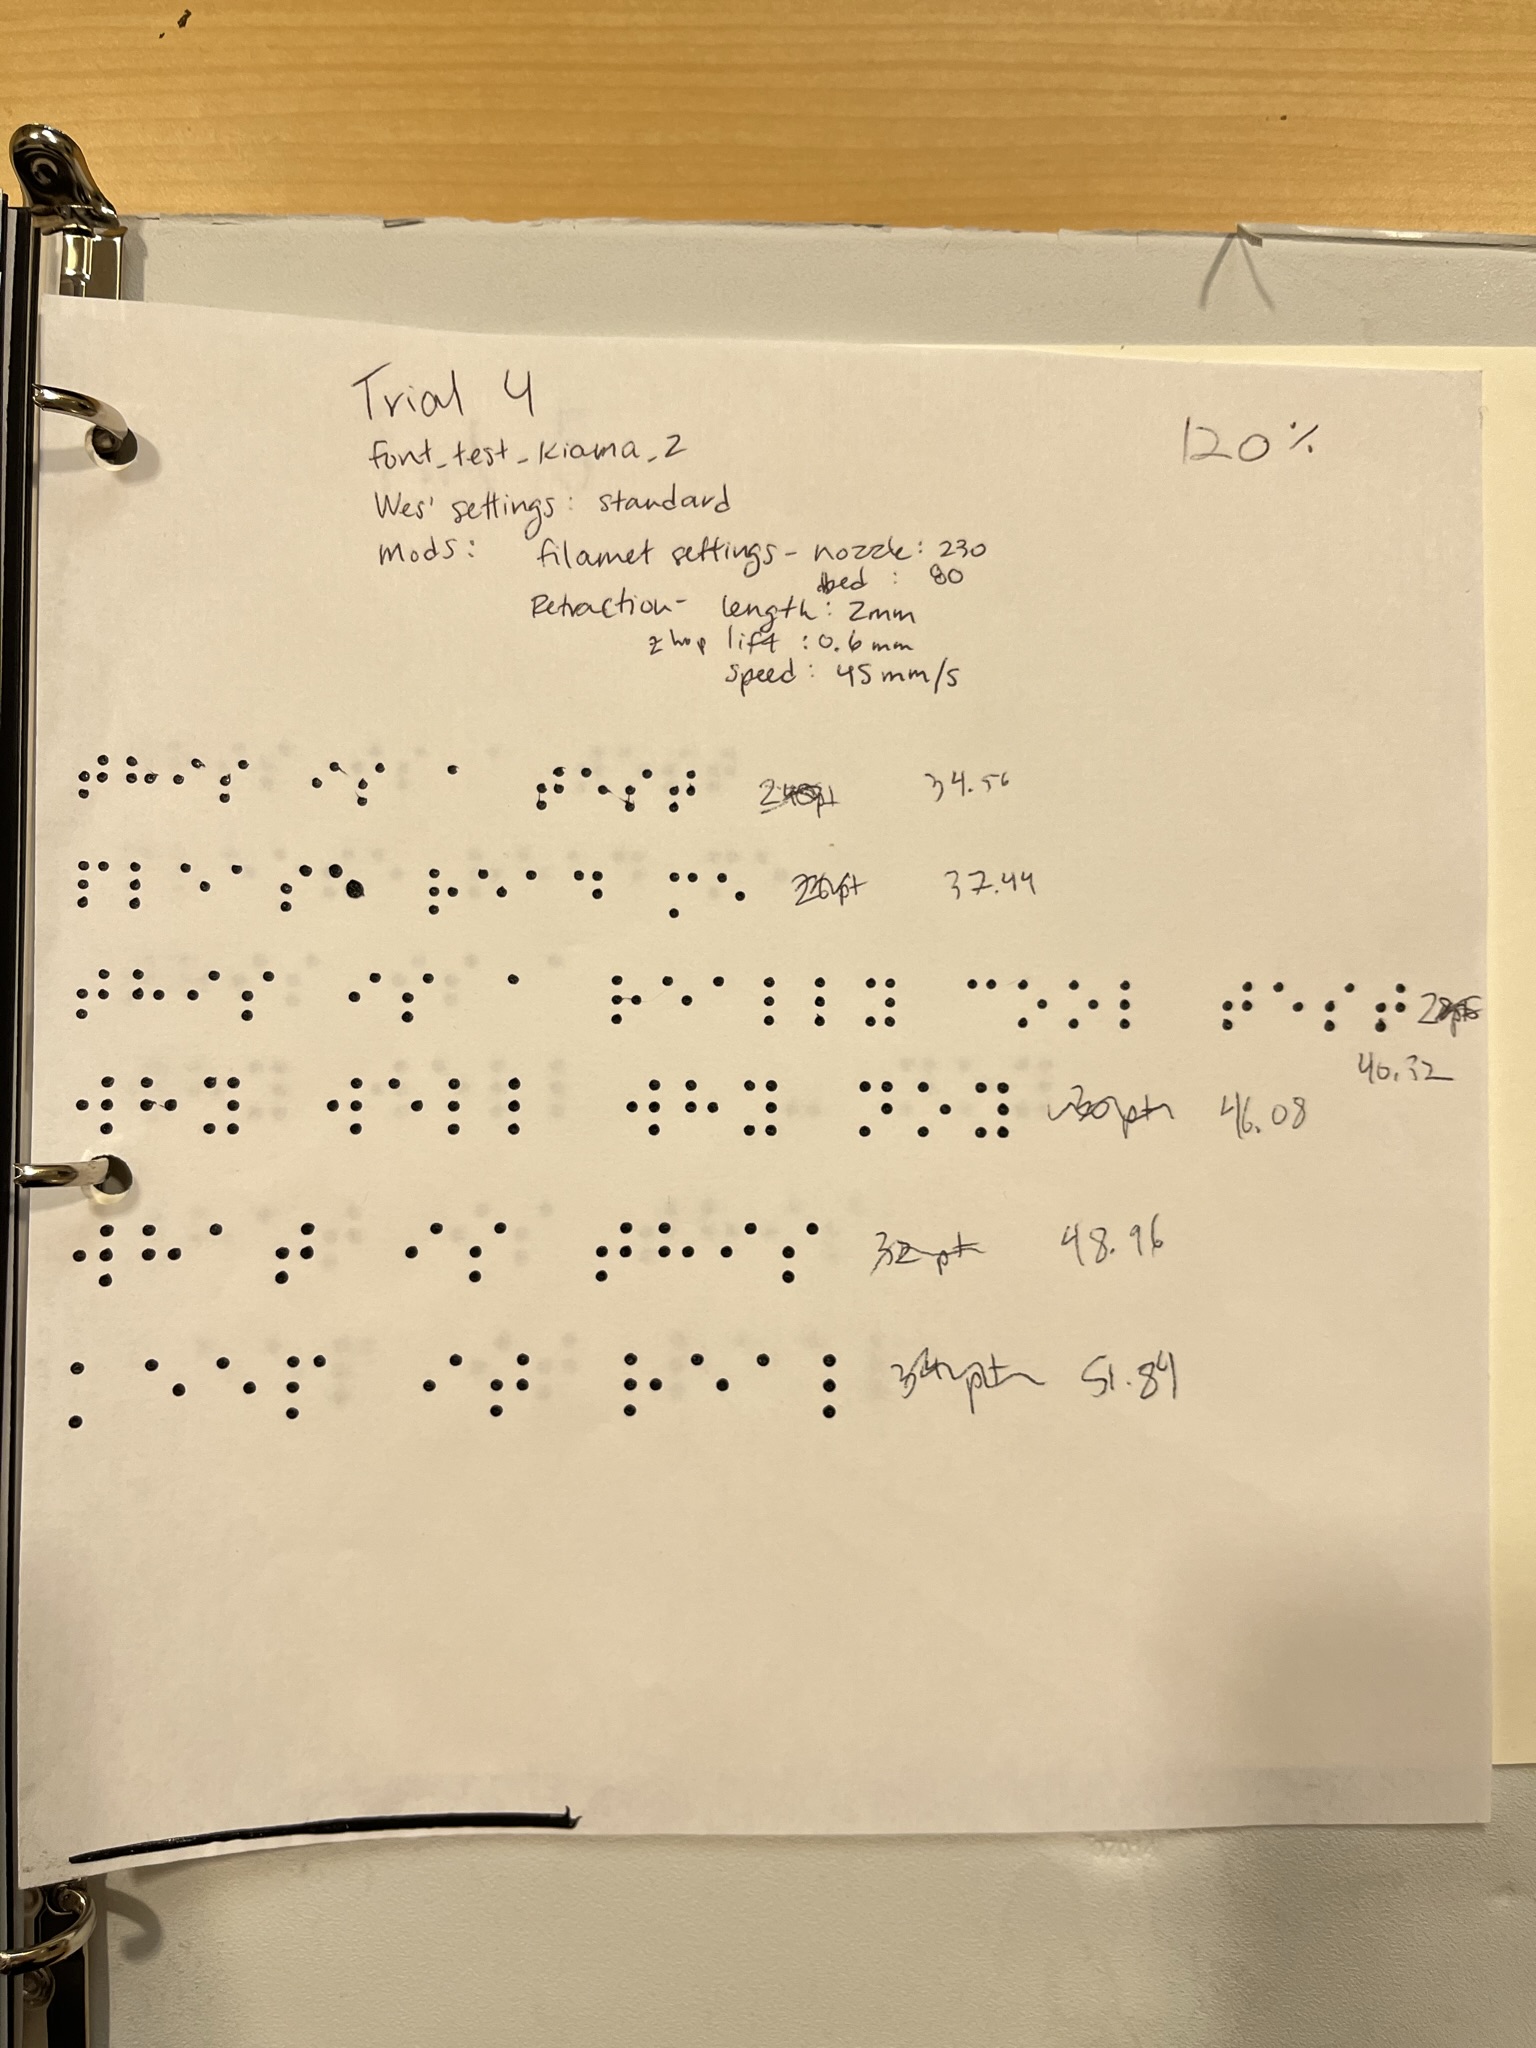 Trial 4
120%
font_test_Kiama_2
Wes' settings: standard
Mods: filamet settings - nozzle: 230
bed : 80
Retraction- length: 2mm
z hop lift : 0.6 mm
speed: 45 mm/s
⠞⠓⠊⠎ ⠊⠎ ⠁ ⠞⠑⠎⠞ 34.56
⠏⠇⠑⠁⠎⠑ ⠗⠑⠁⠙ ⠍⠑ 26pt 37.44
⠞⠓⠊⠎ ⠊⠎ ⠁ ⠗⠑⠁⠇⠇⠽ ⠉⠕⠕⠇ ⠞⠑⠎⠞
40.32
⠺⠓⠽ ⠺⠑⠇⠇ ⠺⠓⠽ ⠝⠕⠽ 30pt 46.08
⠺⠓⠁⠞ ⠊⠎ ⠞⠓⠊⠎ 32pt 48.96
⠅⠑⠑⠏ ⠊⠞ ⠗⠑⠁⠇ 34pt 51.84